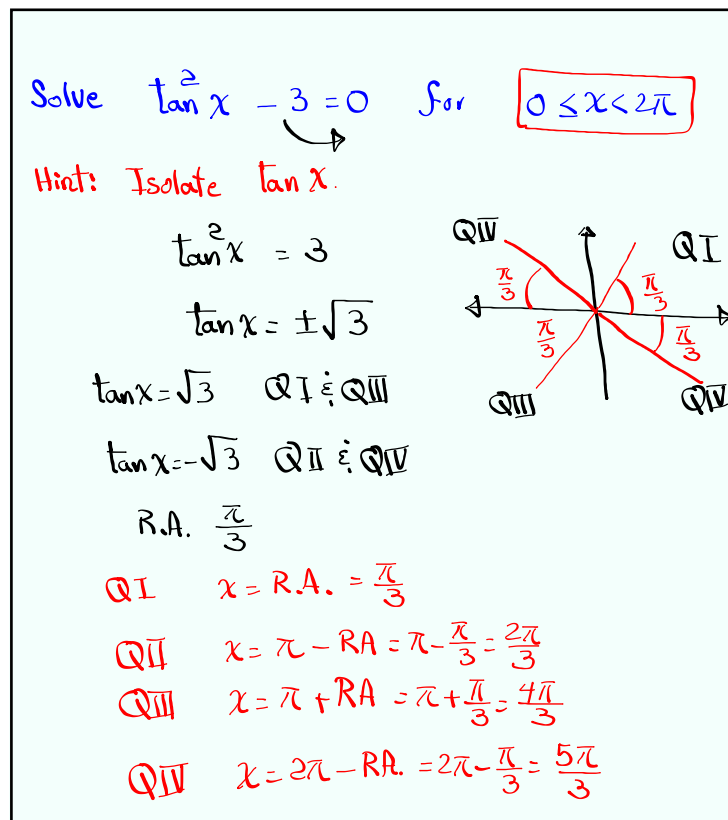 Solve tan²x - 3 = 0 for 0 ≤ x < 2π
Hint: Isolate tan x.
tan²x = 3
tan x = ±√3
tan x = √3 QI & QIII
tan x = -√3 QII & QIV
R.A. π/3
QIV
QI
π/3
π/3
π/3
π/3
QIII
QIV
QI x = R.A. = π/3
QII x = π - RA = π - π/3 = 2π/3
QIII x = π + RA = π + π/3 = 4π/3
QIV x = 2π - RA. = 2π - π/3 = 5π/3